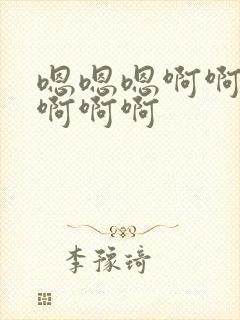 嗯嗯嗯啊啊
啊啊啊
李豫琦